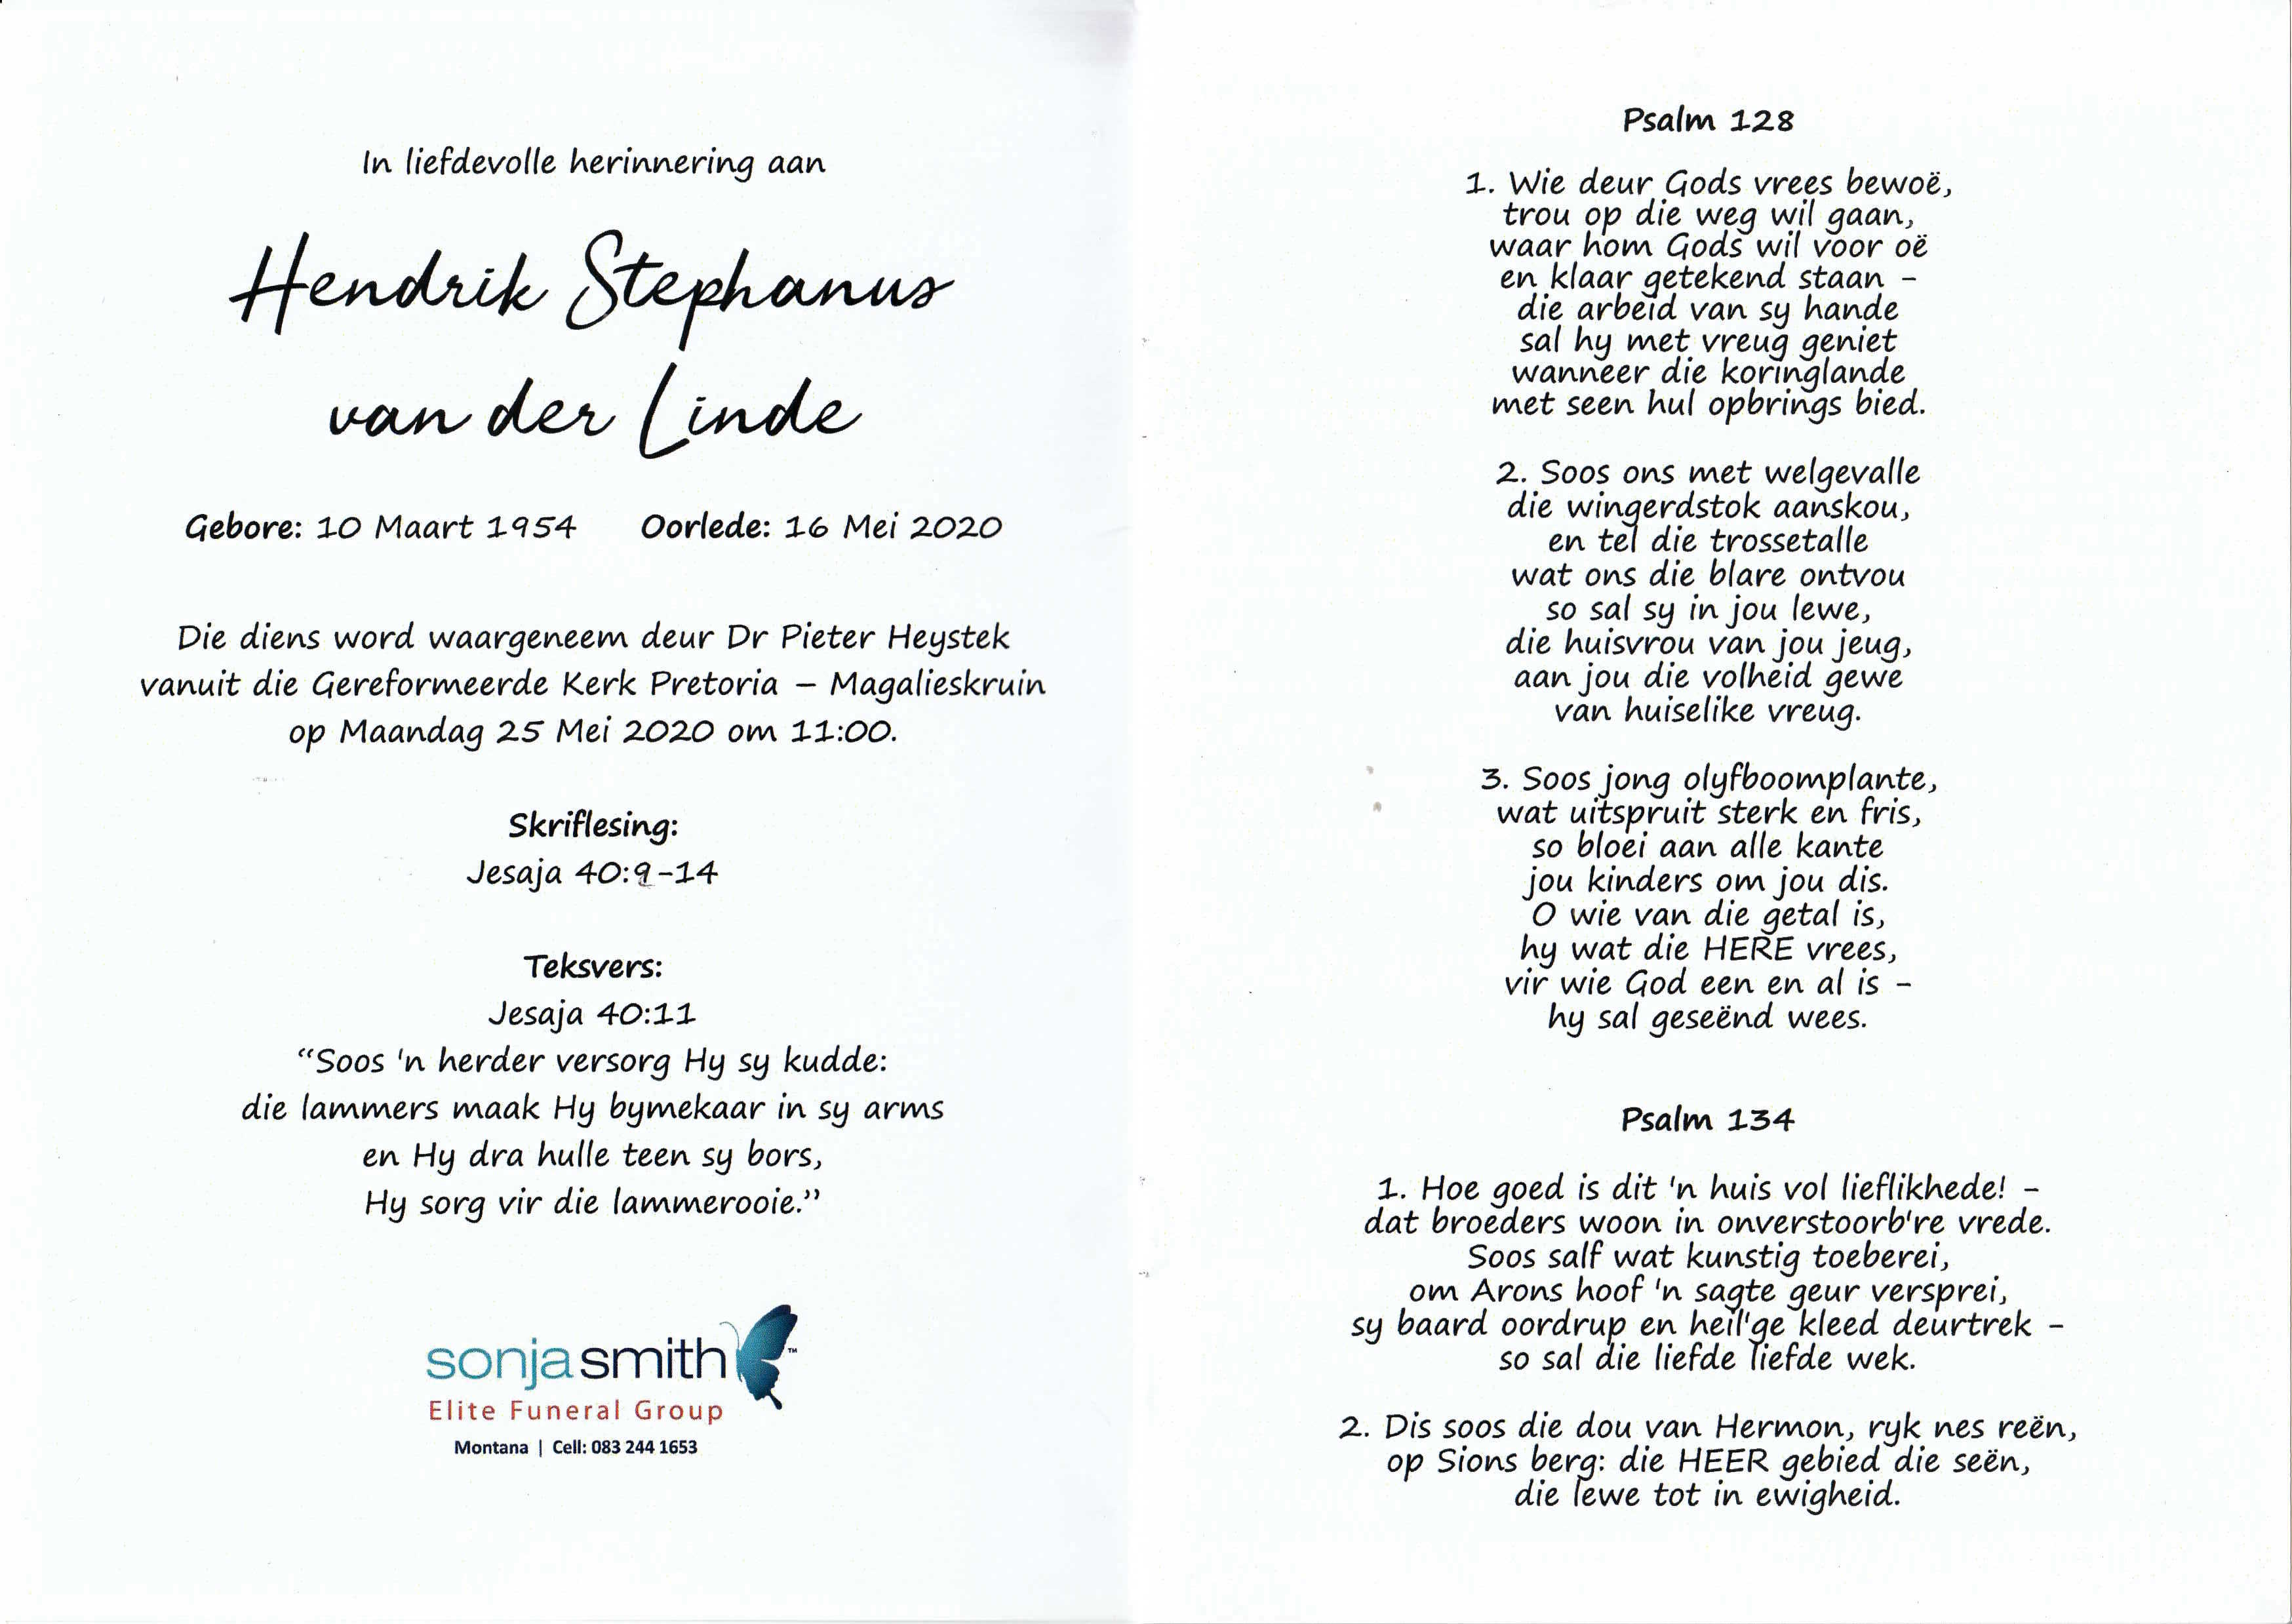 In liefdevolle herinnering aan
Hendrik Stephanus
van der Linde
Gebore: 10 Maart 1954 Oorlede: 16 Mei 2020
Die diens word waargeneem deur Dr Pieter Heystek
vanuit die Gereformeerde Kerk Pretoria – Magalieskruin
op Maandag 25 Mei 2020 om 11:00.
Skriflesing:
Jesaja 40:9-14
Teksvers:
Jesaja 40:11
“Soos 'n herder versorg Hy sy kudde:
die lammers maak Hy bymekaar in sy arms
en Hy dra hulle teen sy bors,
Hy sorg vir die lammerooie.”
sonjasmith™
Elite Funeral Group
Montana | Cell: 083 244 1653
Psalm 128
1. Wie deur Gods vrees bewoë,
trou op die weg wil gaan,
waar hom Gods wil voor oë
en klaar getekend staan -
die arbeid van sy hande
sal hy met vreug geniet
wanneer die koringlande
met seen hul opbrings bied.
2. Soos ons met welgevalle
die wingerdstok aanskou,
en tel die trossetalle
wat ons die blare ontvou
so sal sy in jou lewe,
die huisvrou van jou jeug,
aan jou die volheid gewe
van huiselike vreug.
3. Soos jong olyfboomplante,
wat uitspruit sterk en fris,
so bloei aan alle kante
jou kinders om jou dis.
O wie van die getal is,
hy wat die HERE vrees,
vir wie God een en al is -
hy sal geseënd wees.
Psalm 134
1. Hoe goed is dit 'n huis vol lieflikhede! -
dat broeders woon in onverstoorb're vrede.
Soos salf wat kunstig toeberei,
om Arons hoof 'n sagte geur versprei,
sy baard oordrup en heil'ge kleed deurtrek -
so sal die liefde liefde wek.
2. Dis soos die dou van Hermon, ryk nes reën,
op Sions berg: die HEER gebied die seën,
die lewe tot in ewigheid.